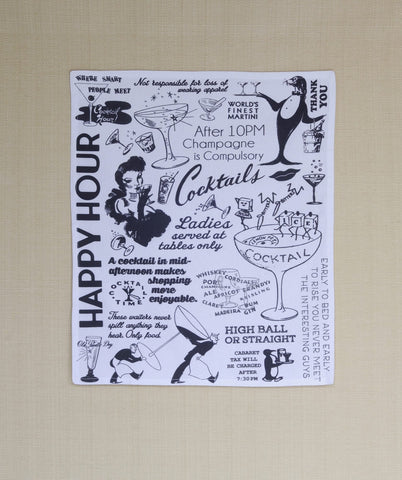 WHERE SMART
PEOPLE MEET
Cocktail
Hour!
Not responsible for loss of
wearing apparel
WORLD'S
FINEST
MARTINI
THANK
YOU
HAPPY HOUR
After 10PM
Champagne
is Compulsory
Cocktails
Ladies
served at
tables only
ICE
COCKTAIL
A cocktail in mid-
afternoon makes
shopping
more
enjoyable.
COCKTAIL
TIME
WHISKEY
CORDIALS
PORT
CHAMPAGNE
ALE
APRICOT BRANDY
CLARET
RUM
MADEIRA
GIN
EARLY TO BED AND EARLY
TO RISE YOU NEVER MEET
THE INTERESTING GUYS
These waiters never
spill anything they
hear. Only food.
HIGH BALL
OR STRAIGHT
CABARET
TAX WILL
BE CHARGED
AFTER
7:30PM